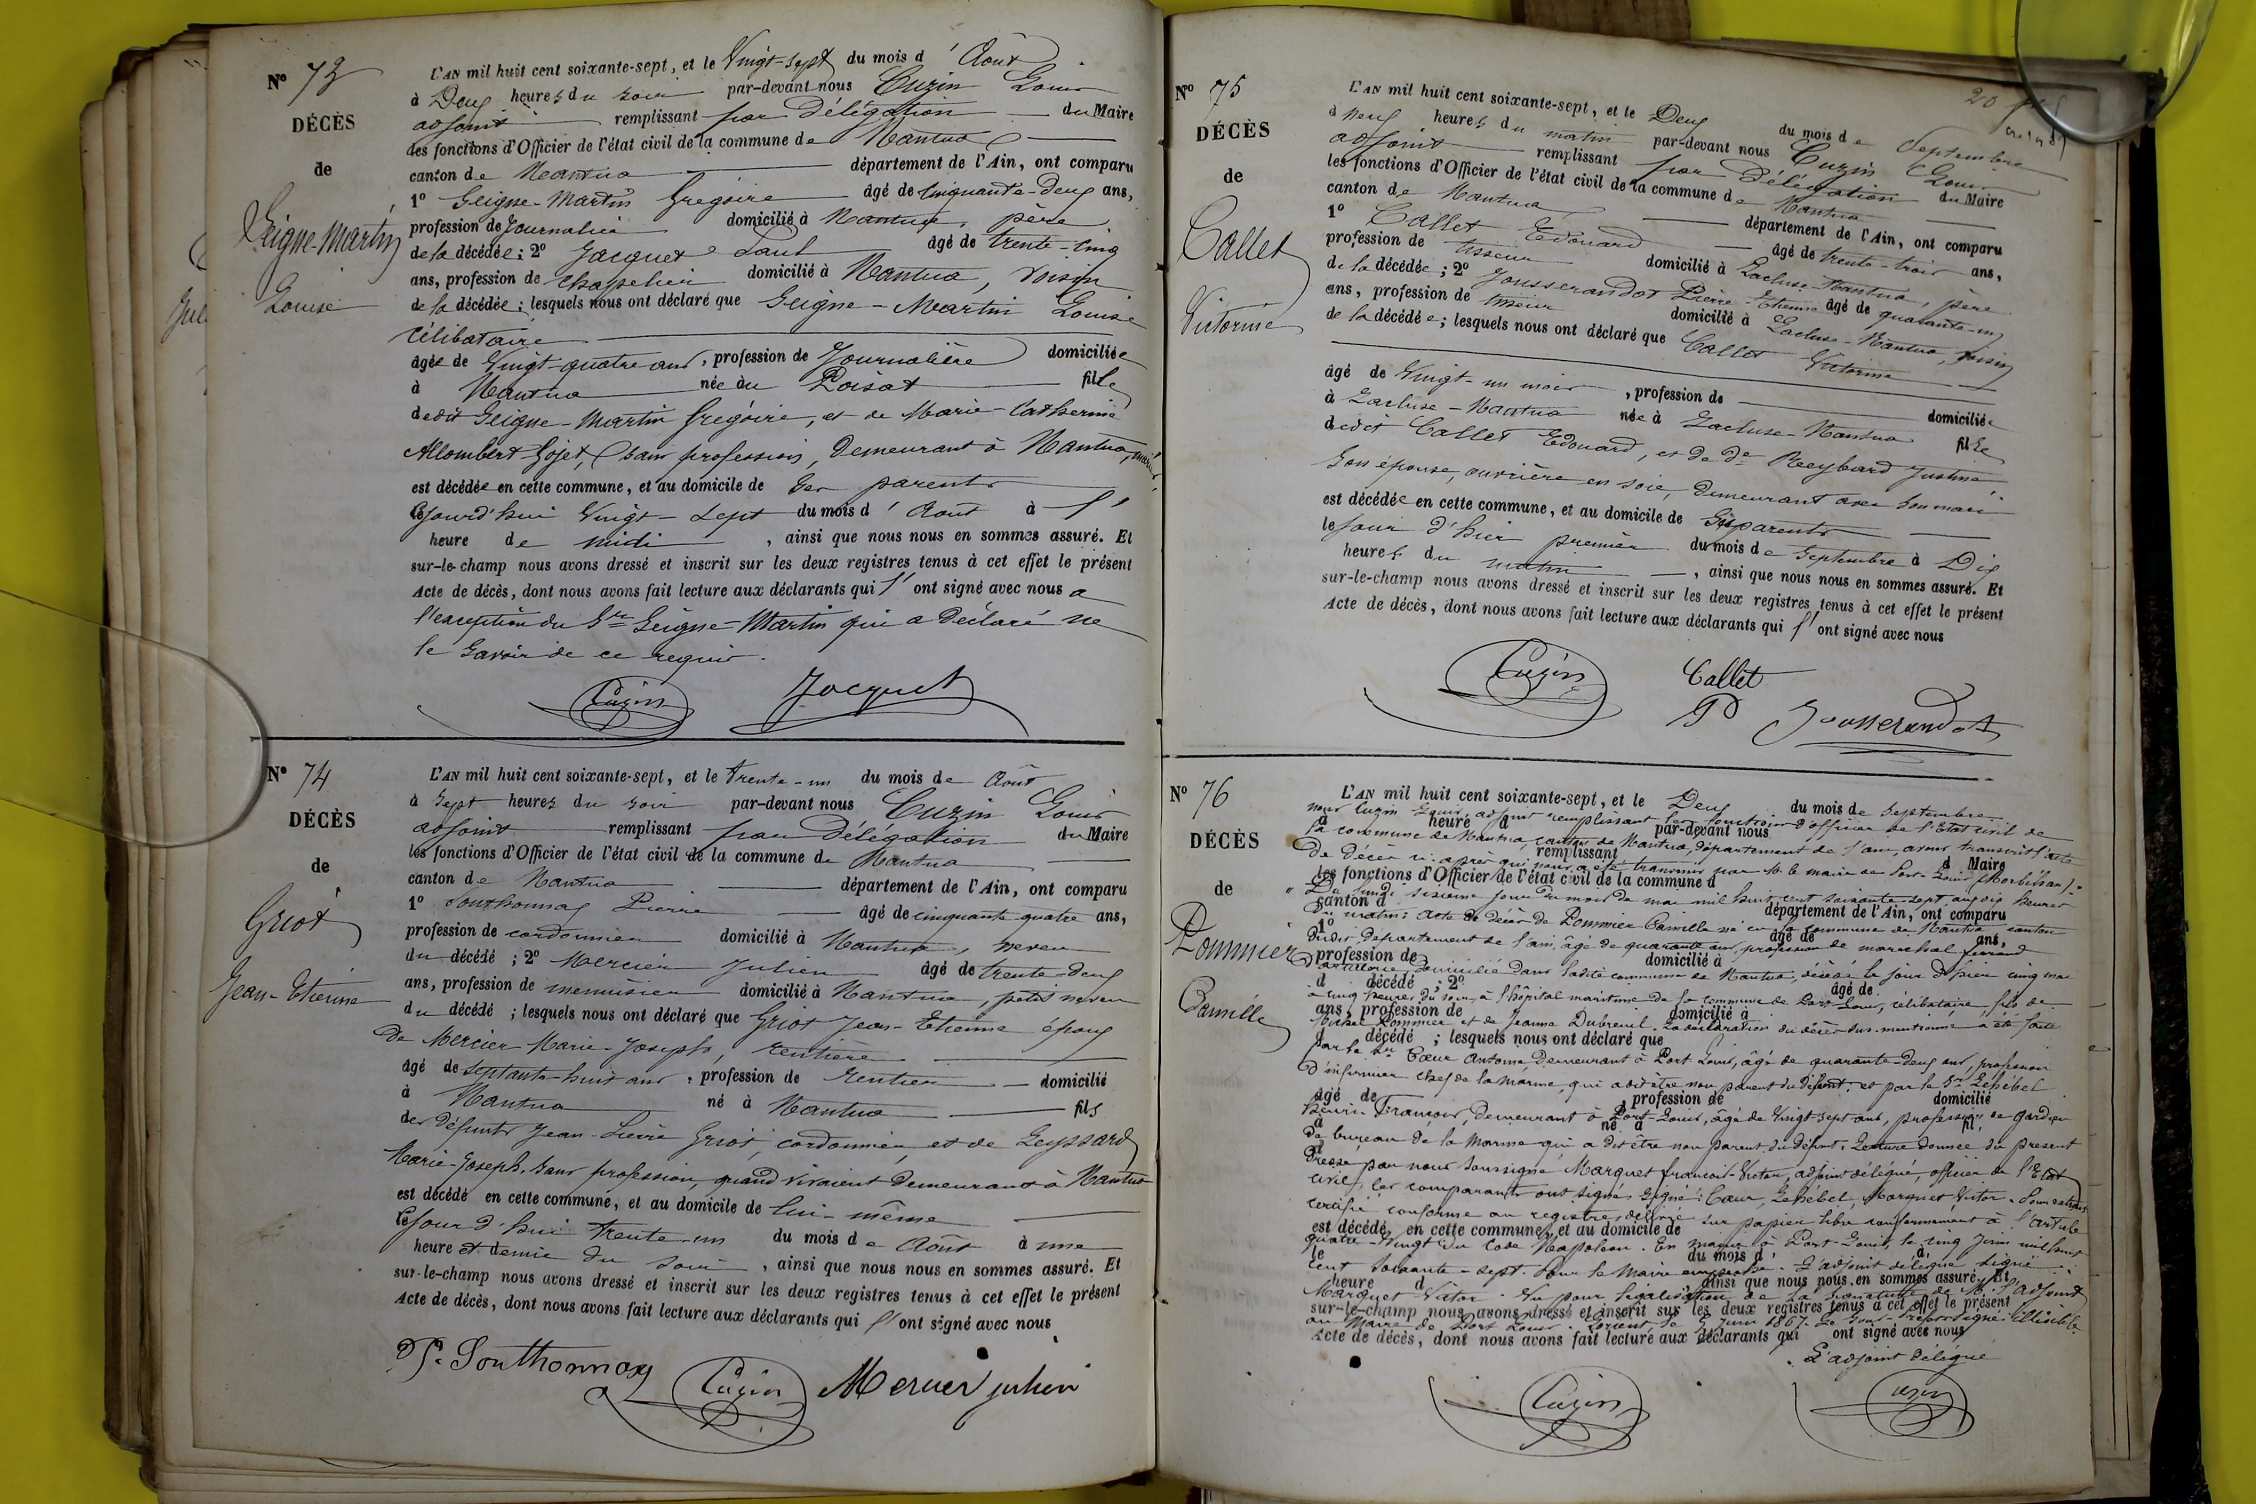 N° 73
DÉCÈS
de
Geigne-Martin
Louise
L'AN mil huit cent soixante-sept, et le Vingt-sept du mois d'Août
à Deux heures du soir par-devant nous Cuzin Louis
adjoint remplissant par Délégation du Maire
les fonctions d'Officier de l'état civil de la commune de Nantua
canton de Nantua département de l'Ain, ont comparu
1° Geigne-Martin Grégoire âgé de Cinquante-Deux ans,
profession de Journalier domicilié à Nantua, père
de la décédée; 2° Jacquet Paul âgé de trente-cinq
ans, profession de chapelier domicilié à Nantua, voisin
de la décédée; lesquels nous ont déclaré que Geigne-Martin Louise
célibataire
âgée de Vingt-quatre ans, profession de Journalière domiciliée
à Nantua née au Poisat fille
dedit Geigne-Martin Grégoire, et de Marie-Catherine
Allombert-Gojet, sans profession, Demeurant à Nantua, mariés,
est décédée en cette commune, et au domicile de ses parents
cejourd'hui Vingt-Sept du mois d'Août à l'
heure de midi, ainsi que nous nous en sommes assuré. Et
sur-le-champ nous avons dressé et inscrit sur les deux registres tenus à cet effet le présent
Acte de décès, dont nous avons fait lecture aux déclarants qui l'ont signé avec nous à
l'exception du Sr Geigne-Martin qui a Déclaré ne
le savoir de ce requis.
Cuzin Jacquet
N° 74
DÉCÈS
de
Griot
Jean-Etienne
L'AN mil huit cent soixante-sept, et le trente-un du mois de Août
à Sept heures du soir par-devant nous Cuzin Louis
adjoint remplissant par Délégation du Maire
les fonctions d'Officier de l'état civil de la commune de Nantua
canton de Nantua département de l'Ain, ont comparu
1° Southonnax Pierre âgé de cinquante quatre ans,
profession de cordonnier domicilié à Nantua, neveu
du décédé; 2° Mercier Julien âgé de trente-deux
ans, profession de menuisier domicilié à Nantua, petit neveu
du décédé; lesquels nous ont déclaré que Griot Jean-Etienne époux
De Mercier Marie-Josephe, rentière
âgé de septante-huit ans, profession de rentier domicilié
à Nantua né à Nantua fils
des défunts Jean-Pierre Griot, cordonnier, et de Leyssard
Marie-Joseph, sans profession, quand vivaient Demeurant à Nantua
est décédé en cette commune, et au domicile de lui-même
cejour d'hui trente-un du mois de Août à une
heure et demie du soir, ainsi que nous nous en sommes assuré. Et
sur-le-champ nous avons dressé et inscrit sur les deux registres tenus à cet effet le présent
Acte de décès, dont nous avons fait lecture aux déclarants qui l'ont signé avec nous
P. Southonnax Cuzin Mercier julien
N° 75
DÉCÈS
de
Callet
Victorine
L'AN mil huit cent soixante-sept, et le Deux du mois de Septembre
à neuf heures du matin par-devant nous Cuzin Louis
adjoint remplissant par Délégation du Maire
les fonctions d'Officier de l'état civil de la commune de Nantua
canton de Nantua département de l'Ain, ont comparu
1° Callet Edouard âgé de trente-trois ans,
profession de tisseur domicilié à Lacluse-Nantua, père
de la décédée; 2° Jousserandot Pierre Etienne âgé de quarante-un
ans, profession de tisseur domicilié à Lacluse-Nantua, voisin
de la décédée; lesquels nous ont déclaré que Callet Victorine
âgé de Vingt-un mois, profession de domiciliée
à Lacluse-Nantua née à Lacluse-Nantua fille
dedit Callet Edouard, et de De Reybard Justine
son épouse, ouvrière en soie, Demeurant avec son mari
est décédée en cette commune, et au domicile de ses parents
le jour d'hier premier du mois de Septembre à Dix
heures du matin, ainsi que nous nous en sommes assuré. Et
sur-le-champ nous avons dressé et inscrit sur les deux registres tenus à cet effet le présent
Acte de décès, dont nous avons fait lecture aux déclarants qui l'ont signé avec nous
Cuzin Callet
P Jousserandot
N° 76
DÉCÈS
de
Pommier
Camille
L'AN mil huit cent soixante-sept, et le Deux du mois de Septembre
nous Cuzin Louis adjoint remplissant les fonctions d'officier de l'Etat civil de
à heure d par-devant nous
la commune de Nantua, canton de Nantua, département de l'ain, avons transcrit l'acte
remplissant d Maire
de Décès ci-après qui nous a été transmis par M. le maire de Port-Louis (Morbihan):
les fonctions d'Officier de l'état civil de la commune d
Du lundi sixième jour du mois de mai mil huit cent soixante-sept à dix heures
canton d département de l'Ain, ont comparu
du matin: acte de décès de Pommier Camille né en la commune de Nantua canton
1° âgé de ans,
dudit département de l'ain, âgé de quarante ans, profession de maréchal ferrant
profession de domicilié à
d'artillerie, domicilié dans ladite commune de Nantua, décédé le jour d'hier cinq mai
d décédé; 2° âgé de
à cinq heures du soir, à l'hôpital maritime de la commune de Port-Louis, célibataire, fils de
ans, profession de domicilié à
Michel Pommier et de Jeanne Dubreuil. La déclaration du décès sus-mentionné a été faite
d décédé; lesquels nous ont déclaré que
par le Sr Cœur Antoine, Demeurant à Port Louis, âgé de quarante-Deux ans, profession
d'infirmier chef de la marine, qui a dit être non parent du défunt; et par le Sr Lebébel
âgé de, profession de domicilié
Henri-François, Demeurant à Port-Louis, âgé de Vingt sept ans, profession de gardien
à né à fil
de bureau de la marine qui a dit être non parent du défunt. Lecture donnée du présent
dressé par nous soussigné Marquet François-Victor, adjoint délégué, officier de l'Etat
civil, les comparants ont signé. Signé: Cœur, Lebébel, Marquet Victor. Pour extrait
certifié conforme au registre, délivré sur papier libre conformément à l'article
est décédé en cette commune, et au domicile de
quatre-vingt du Code Napoléon. En mairie à Port-Louis, le cinq Juin mil huit
le du mois d à
cent soixante-sept. Pour le Maire empêché. L'adjoint délégué signé:
heure d, ainsi que nous nous en sommes assuré. Et
Marquet Victor. Vu pour légalisation de la signature de M. l'adjoint
sur-le-champ nous avons dressé et inscrit sur les deux registres tenus à cet effet le présent
au Maire de Port Louis. Lorient, le 5 Juin 1867. Le Sous-Préfet signé: illisible.
Acte de décès, dont nous avons fait lecture aux déclarants qui ont signé avec nous
L'adjoint délégué
Cuzin Cuzin